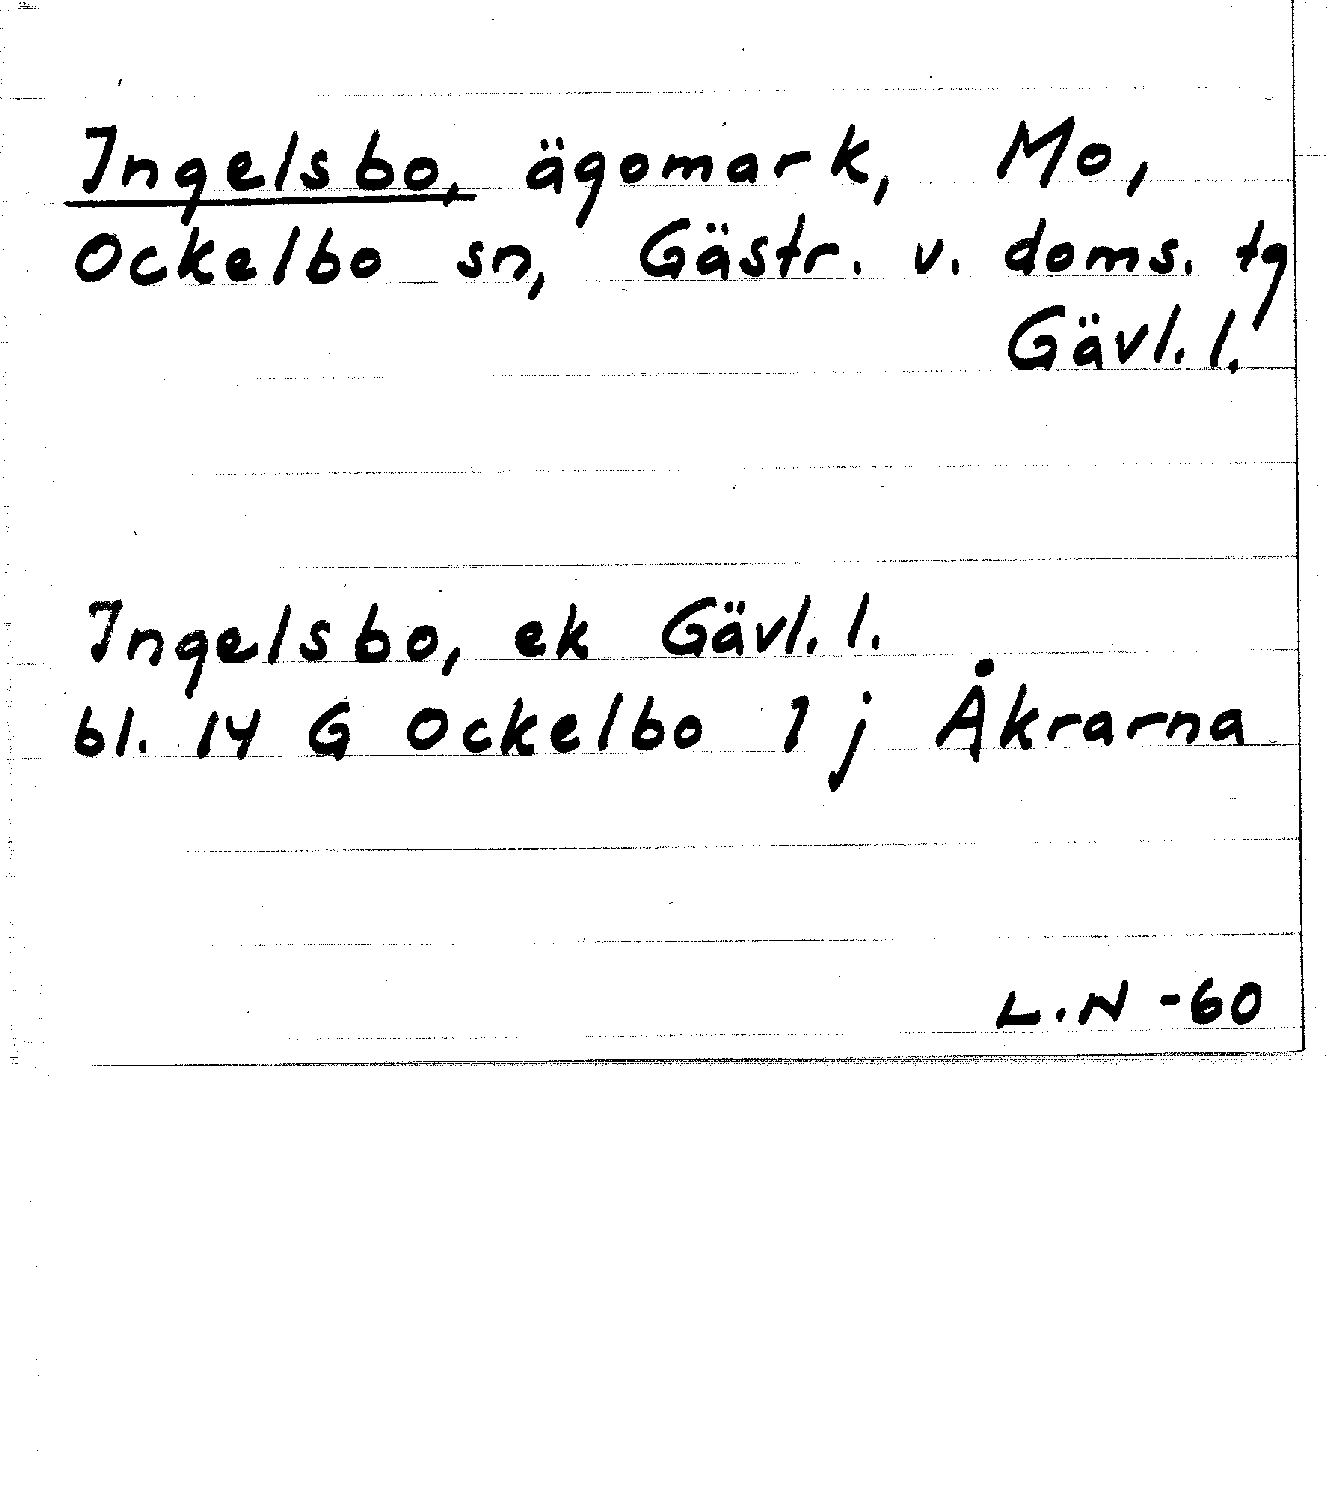 Ingelsbo, ägomark, Mo,
Ockelbo sn, Gästr. v. doms. tg
Gävl. l.
Ingelsbo, ek Gävl. l.
bl. 14 G Ockelbo 1 j Åkrarna
L.N -60